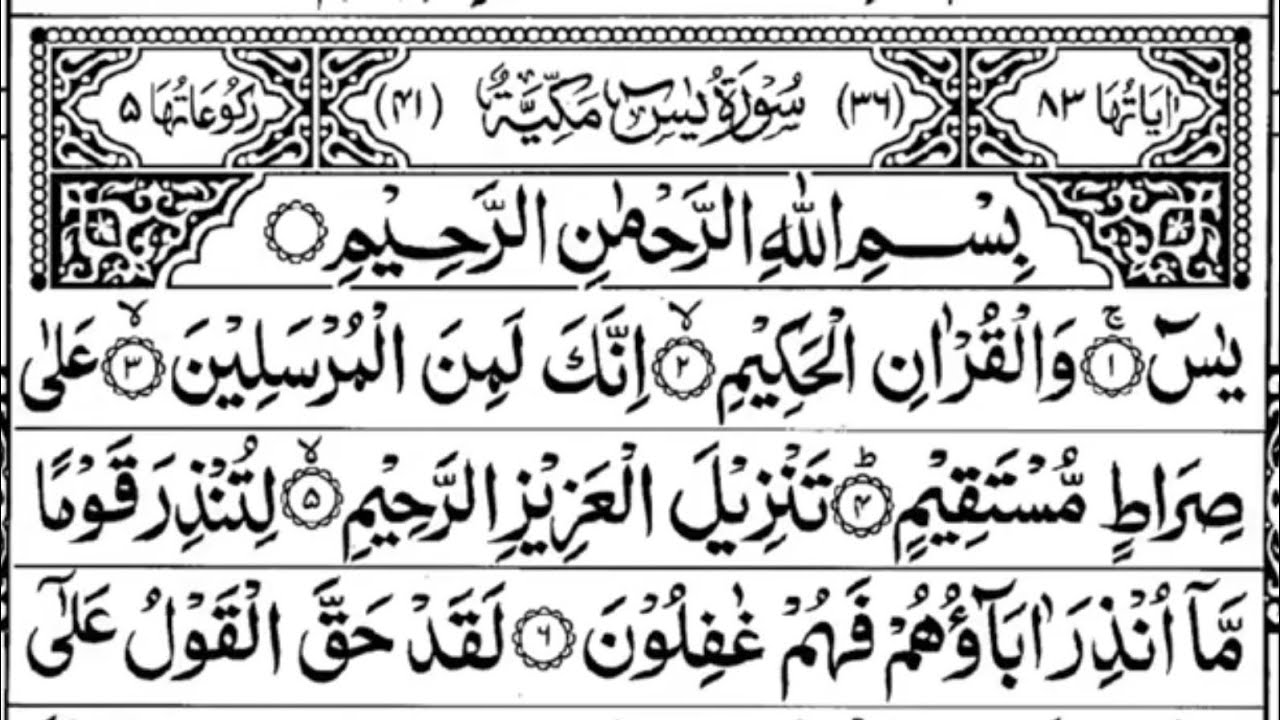 اٰیَاتُهَا ۸۳ (۳۶) سُوْرَةُ یٰسٓ مَکِّیَّةٌ (۴۱) رُکُوْعَاتُهَا ۵
بِسْمِ اللّٰهِ الرَّحْمٰنِ الرَّحِیْمِ ۝
یٰسٓ ۝۱ۚ وَالْقُرْاٰنِ الْحَکِیْمِ ۝۲ۙ اِنَّكَ لَمِنَ الْمُرْسَلِیْنَ ۝۳ۙ عَلٰی
صِرَاطٍ مُّسْتَقِیْمٍ ۝۴ؕ تَنْزِیْلَ الْعَزِیْزِ الرَّحِیْمِ ۝۵ۙ لِتُنْذِرَ قَوْمًا
مَّاۤ اُنْذِرَ اٰبَآؤُهُمْ فَهُمْ غٰفِلُوْنَ ۝۶ لَقَدْ حَقَّ الْقَوْلُ عَلٰۤی